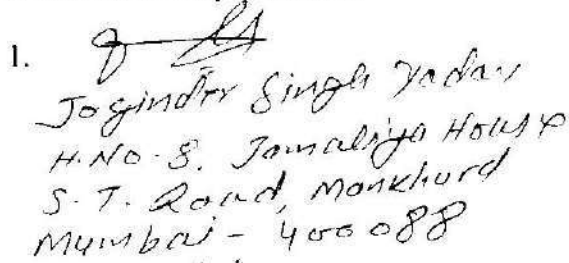 1.
Joginder Singh Yadav
H.No-8, Jamaliya House
S.T. Road, Mankhurd
Mumbai - 400088